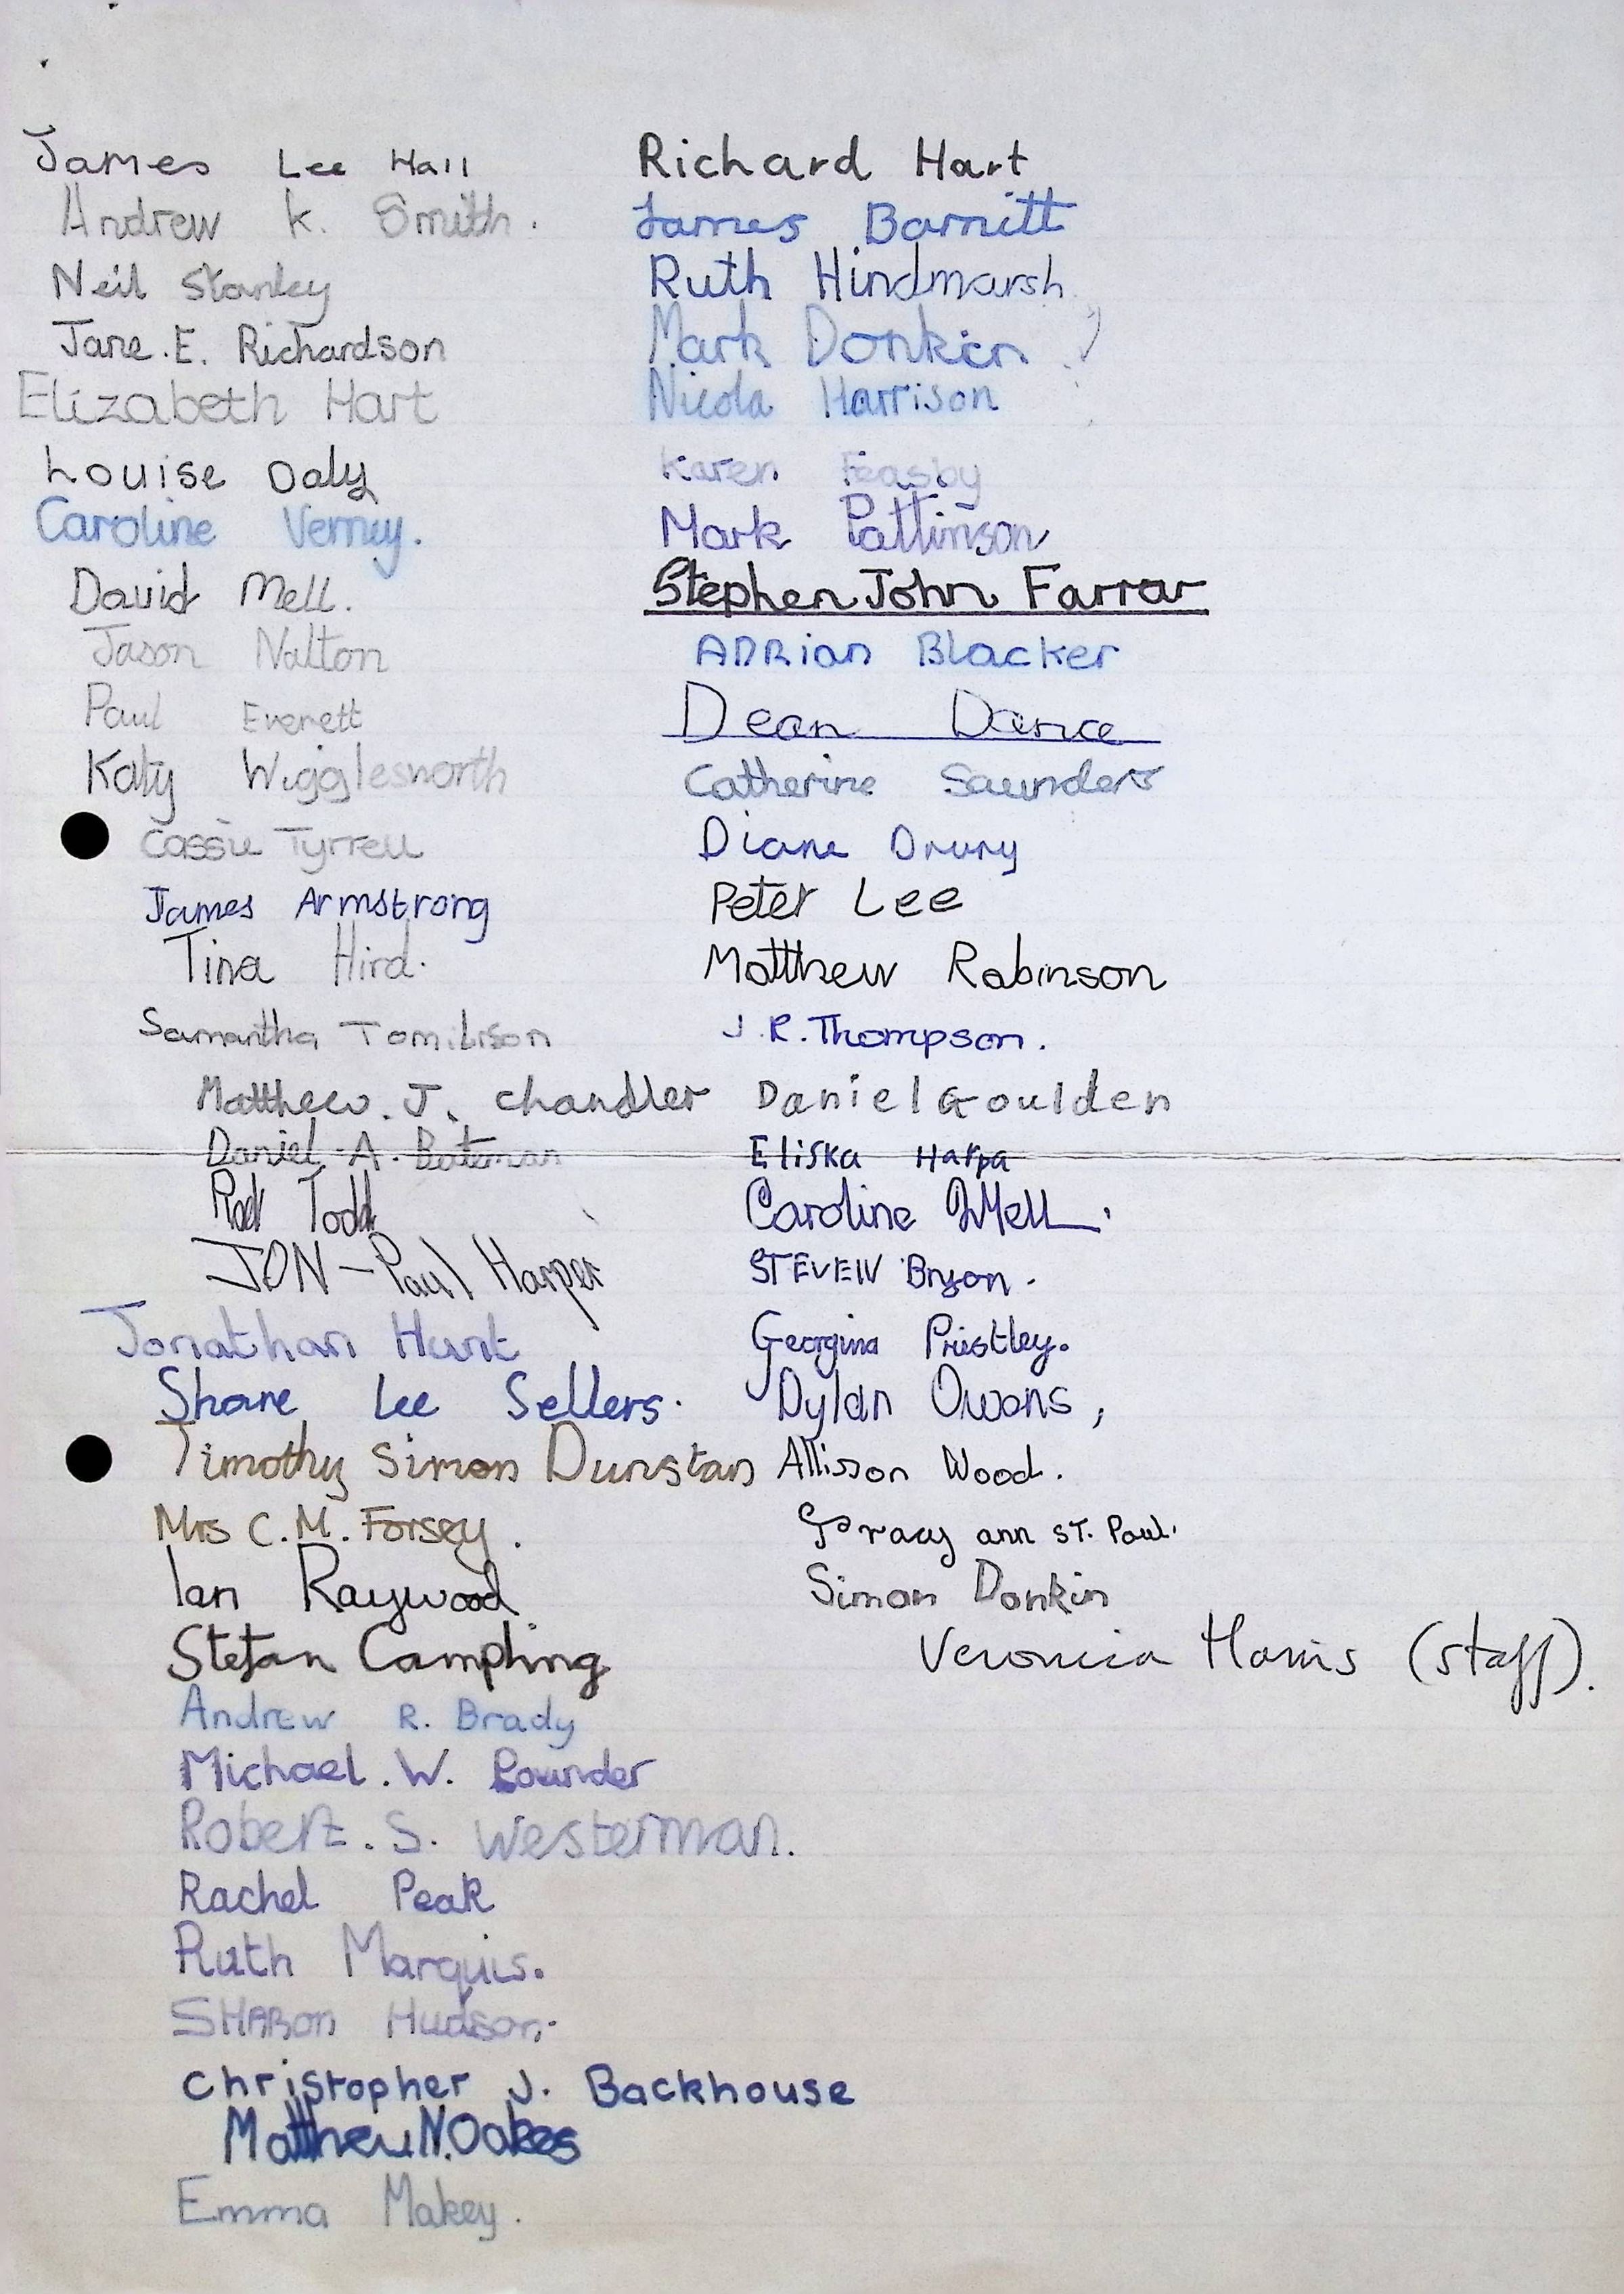 James Lee Hall
Andrew K. Smith.
Neil Stanley
Jane. E. Richardson
Elizabeth Hart
Louise Daly
Caroline Verney.
David Mell.
Jason Nalton
Paul Everett
Katy Wigglesworth
Cassie Tyrrell
James Armstrong
Tina Hird.
Samantha Tomilison
Matthew. J. Chandler
Daniel A. Bateman
Todd
JON-Paul Harper
Jonathan Hunt
Shane Lee Sellers.
Timothy Simon Dunstan
Mrs C. M. Forsey.
Ian Raywood
Stefan Campling
Andrew R. Brady
Michael. W. Pounder
Robert. S. Westerman.
Rachel Peak
Ruth Marquis.
SHARon Hudson.
Christopher J. Backhouse
Matthew N. Oakes
Emma Makey.
Richard Hart
James Barnitt
Ruth Hindmarsh
Mark Donkin
Nicola Harrison
Karen Feasby
Mark Pattinson
Stephen John Farrar
ADRian Blacker
Dean Dance
Catherine Saunders
Diane Drury
Peter Lee
Matthew Robinson
J. R. Thompson.
Daniel Goulden
Eliska Harpa
Caroline Mell.
STEVEN Bryson.
Georgina Priestley.
Dylan Owens,
Allison Wood.
Tracy ann ST. Paul.
Simon Donkin
Veronica Harris (staff).